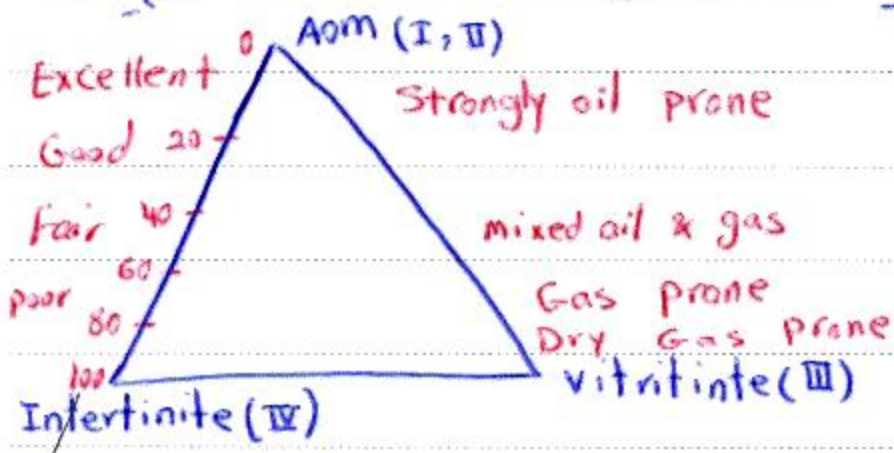 0 Aom (I, II)
Excellent
Strongly oil prone
Good 20
Fair 40
mixed oil & gas
60
poor
Gas prone
80
Dry Gas prone
100
Vitritinte (III)
Intertinite (IV)